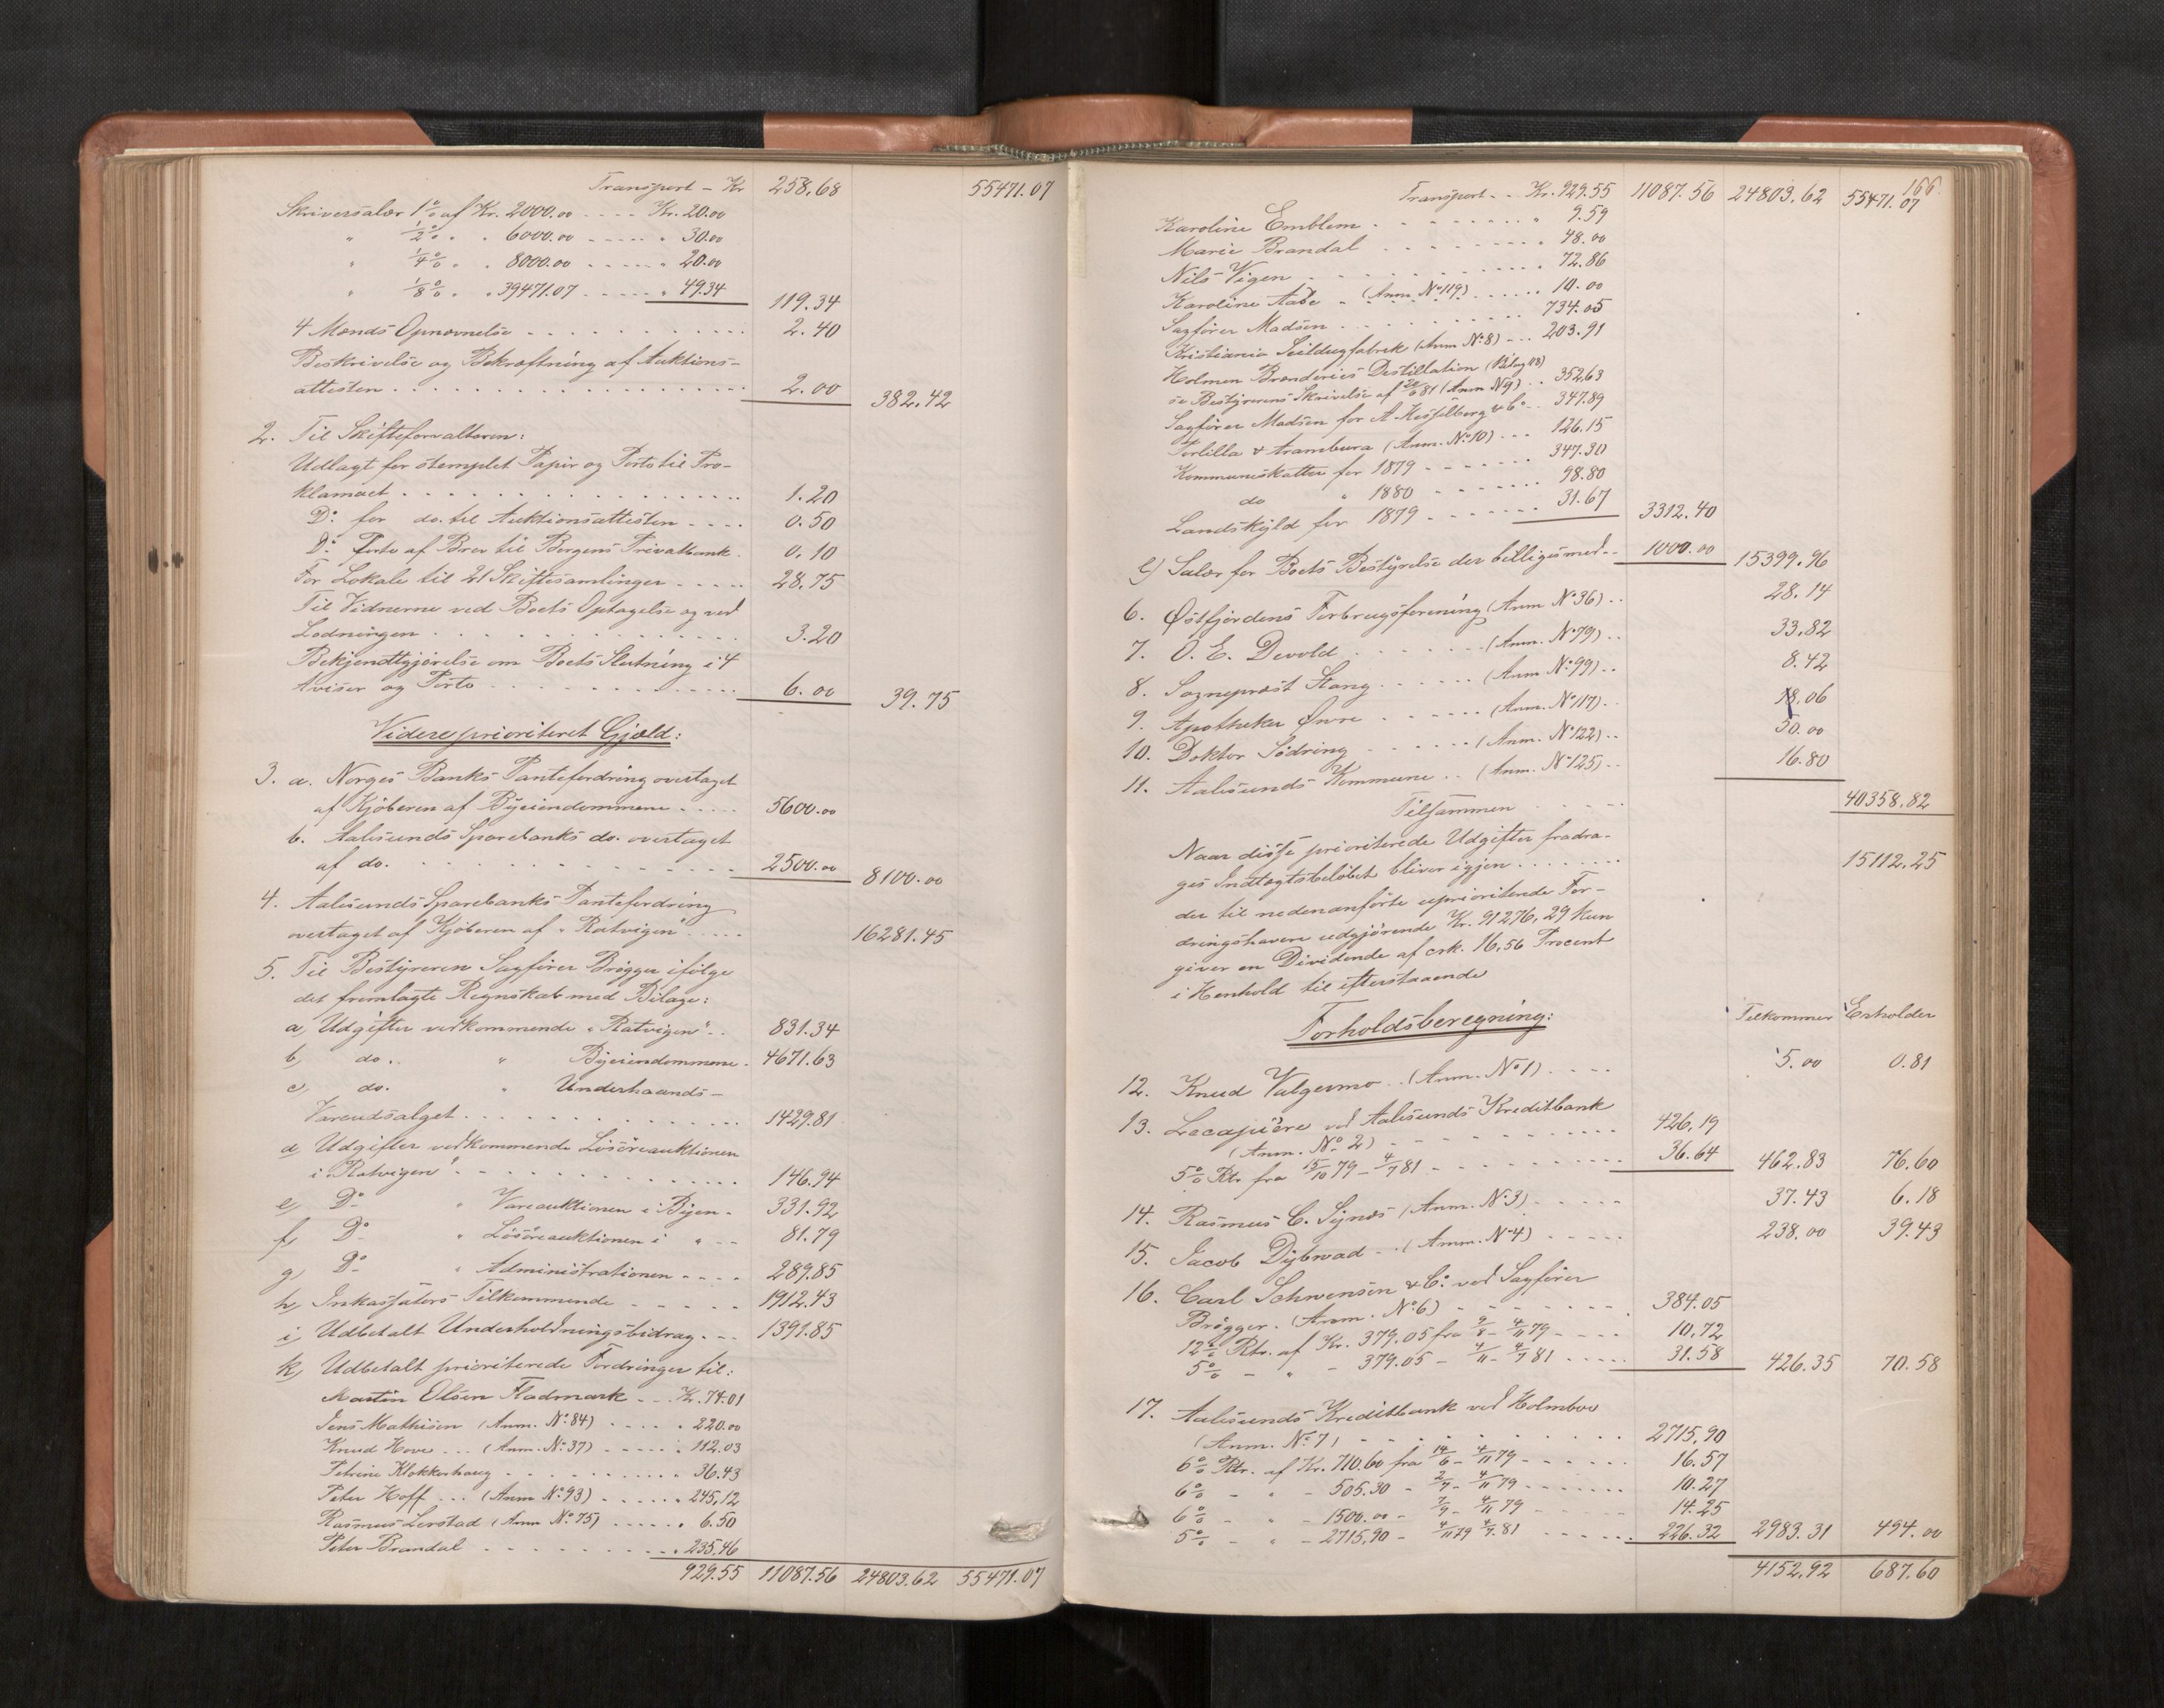 Transport - Kr 258.68 55471.07
Skriversalær 1% af Kr. 2000.00 .... Kr. 20.00
" 1/2% " " 6000.00 ..... " 30.00
" 1/4% " " 8000.00 ..... " 20.00
" 1/8% " " 39471.07 ..... " 49.34 119.34
4 Mænds Opnævnelse ......... 2.40
Beskrivelse og Bekræftning af Auktions-
attesten ............ 2.00 382.42
2. Til Skifteforvalteren:
Udlagt for stemplet Papir og Porto til Pro-
klamaet ............ 1.20
Do. for do. til Auktionsattesten .... 0.50
Do. Porto af Brev til Bergens Privatbank. 0.10
For Lokale til 21 Skiftesamlinger ..... 28.75
Til Vidnerne ved Boets Optagelse og ved
Lodningen ............ 3.20
Bekjendtgjørelse om Boets Slutning i 4
Aviser og Porto ........... 6.00 39.75
Videre prioriteret Gjæld:
3. a. Norges Banks Pantefordring overtaget
af Kjøberen af Byeiendommene ..... 5600.00
b. Aalesunds Sparebanks do. overtaget
af do. ............ 2500.00 8100.00
4. Aalesunds Sparebanks Pantefordring
overtaget af Kjøberen af "Ratvigen" ..... 16281.45
5. Til Bestyreren Sagfører Brøgger ifølge
det fremlagte Regnskab med Bilage:
a, Udgifter vedkommende "Ratvigen" .. 831.34
b, do. " Byeiendommene. 4671.63
c, do. " Underhaands-
Vareudsalget ............ 1429.81
d, Udgifter vedkommende Løsøreauktionen
i "Ratvigen" ............ 146.94
e, Do " Vareauktionen i Byen - 331.92
f, Do " Løsøreauktionen i " -- 81.79
g, Do " Administrationen .... 289.85
h, Inkassators Tilkommende ..... 1912.43
i, Udbetalt Underholdningsbidrag ... 1391.85
k, Udbetalt prioriterede Fordringer til:
Martin Olsen Fladmark ... Kr. 74.01
Jens Mathisen (Anm. No. 84) ..... " 220.00
Knud Hove ... (Anm. No. 37) ..... " 112.03
Petrine Klokkerhaug .......... " 36.43
Peter Hoff ... (Anm No. 93) ..... " 245.12
Rasmus Lerstad (Anm No. 75) ..... " 6.50
Peter Brandal .......... " 235.46
929.55 11087.56 24803.62 55471.07
166.
Transport .. Kr. 929.55 11087.56 24803.62 55471.07
Karoline Emblem ......... " 9.59
Marie Brandal ......... " 48.00
Nils Vigen ......... " 72.86
Karoline Aabe " (Anm. No 119) ..... " 10.00
Sagfører Madsen ......... 734.05
Kristiania Seildugfabrik (Anm No. 8) ... 203.91
Holmen Brænderies Destillation (Bilag 48)
se Bestyrerens Skrivelse af 2/6 81 (Anm No 9) .. 352.63
Sagfører Madsen for A. Hesselberg & Co .. 347.89
Portilla & Arambura (Anm. No. 10) ... 126.15
Kommuneskatter for 1879 ....... 347.30
do " 1880 ....... 98.80
Landskyld for 1879 ....... 31.67 3312.40
l) Salær for Boets Bestyrelse der billiges med .. 1000.00 15399.96
6. Østfjordens Forbrugsforening (Anm No 36) .. 28.14
7. O. E. Devold ....... (Anm. No 79) .. 33.82
8. Sogneprest Stang ...... (Anm No. 99) .. 8.42
9. Apotheker Øwre ...... (Anm. No 117) .. 18.06
10. Doktor Sødring ...... (Anm. No 122) .. 50.00
11. Aalesunds Kommune .. (Anm. No 125) .. 16.80
Tilsammen ..... 40358.82
Naar disse prioriterede Udgifter fradra-
ges Indtægtsbeløbet bliver igjen ....... 15112.25
der til nedenanførte uprioriterede For-
dringshavere udgjørende Kr. 91276.29 kun
giver en Dividende af crk. 16.56 Procent
i Henhold til efterstaaende
Forholdsberegning: Tilkommer Erholder
12. Knud Valgermo .. (Anm. No 1) .... 5.00 0.81
13. Lecapiére ved Aalesunds Kreditbank
(Anm. No 2) .......... 426.19
5% Rtr fra 15/10 79 - 4/7 81 ......... 36.64 462.83 76.60
14. Rasmus C. Synes (Anm. No 3) ..... 37.43 6.18
15. Jacob Dybwad .. (Anm. No 4) ..... 238.00 39.43
16. Carl Schwensen & Co. ved Sagfører
Brøgger. (Anm. No. 6) ....... 384.05
12% Rtr. af Kr. 379.05 fra 9/8 - 4/11 79 .... 10.72
5% - " - 379.05 - 4/11 - 4/7 81 ..... 31.58 426.35 70.58
17. Aalesunds Kreditbank ved Holmboe
(Anm. No. 7) .......... 2715.90
6% Rtr. af Kr. 710.60 fra 14/6 - 4/11 79 ...... 16.57
6% - " - 505.30 - 2/7 - 4/11 79 ....... 10.27
6% - " - 1500.00 - 7/9 - 4/11 79 ... 14.25
5% - " - 2715.90 - 4/11 79 4/7 81 ...... 226.32 2983.31 494.00
4152.92 687.60